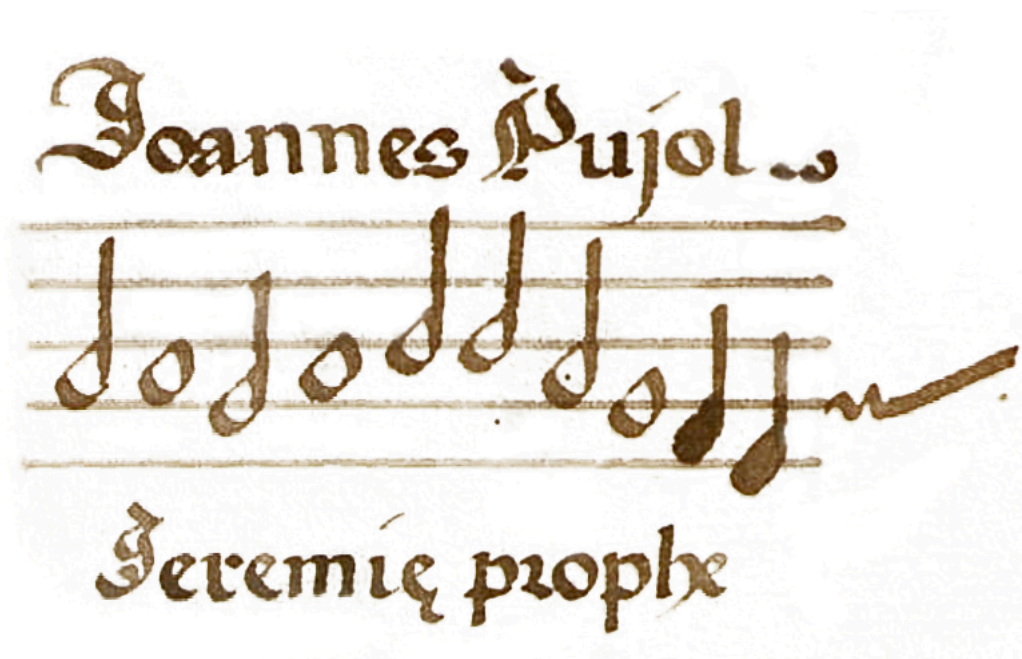 Joannes Pujol
Jeremię prophe